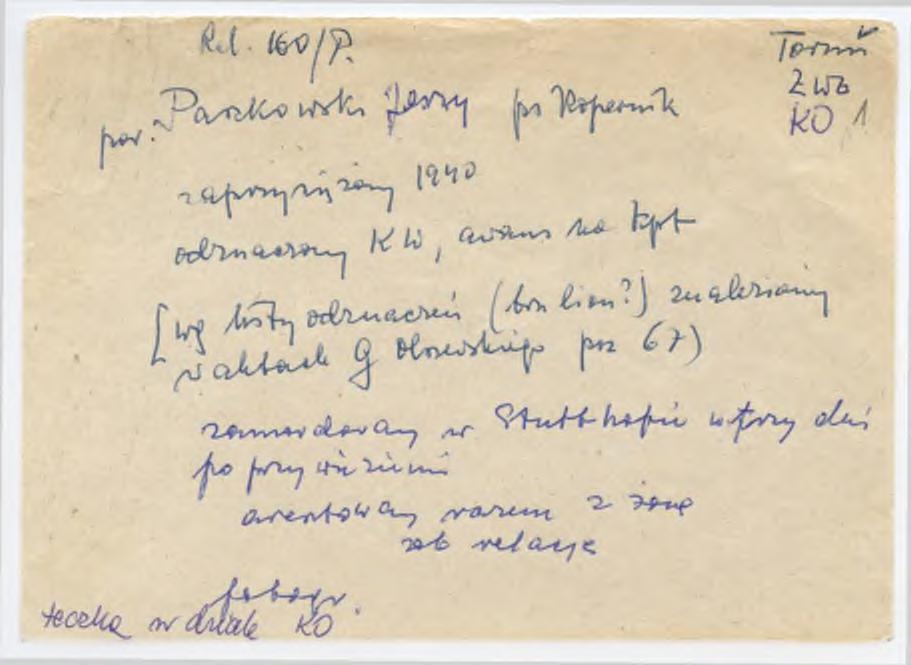 Rel. 160/P.
Toruń
ZWZ
KO 1
por. Paszkowski Jerzy ps Kopernik
zaprzysiężony 1940
odznaczony KW, awans na kpt
[wg listy odznaczeń znalezionej
w aktach G Olszewskiego poz 67)
zamordowany w Stutthofie w trzy dni
po przywiezieniu
aresztowany razem z żoną
zob relację
fotogr.
teczka w dziale KO